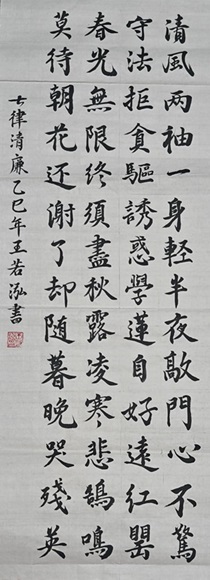 清風兩袖一身輕半夜敲門心不驚
守法拒貪驅誘惑學蓮自好遠紅罌
春光無限終須盡秋露凌寒悲鵠鳴
莫待朝花还謝了却随暮晚哭殘英
七律清廉乙巳年王若泓書